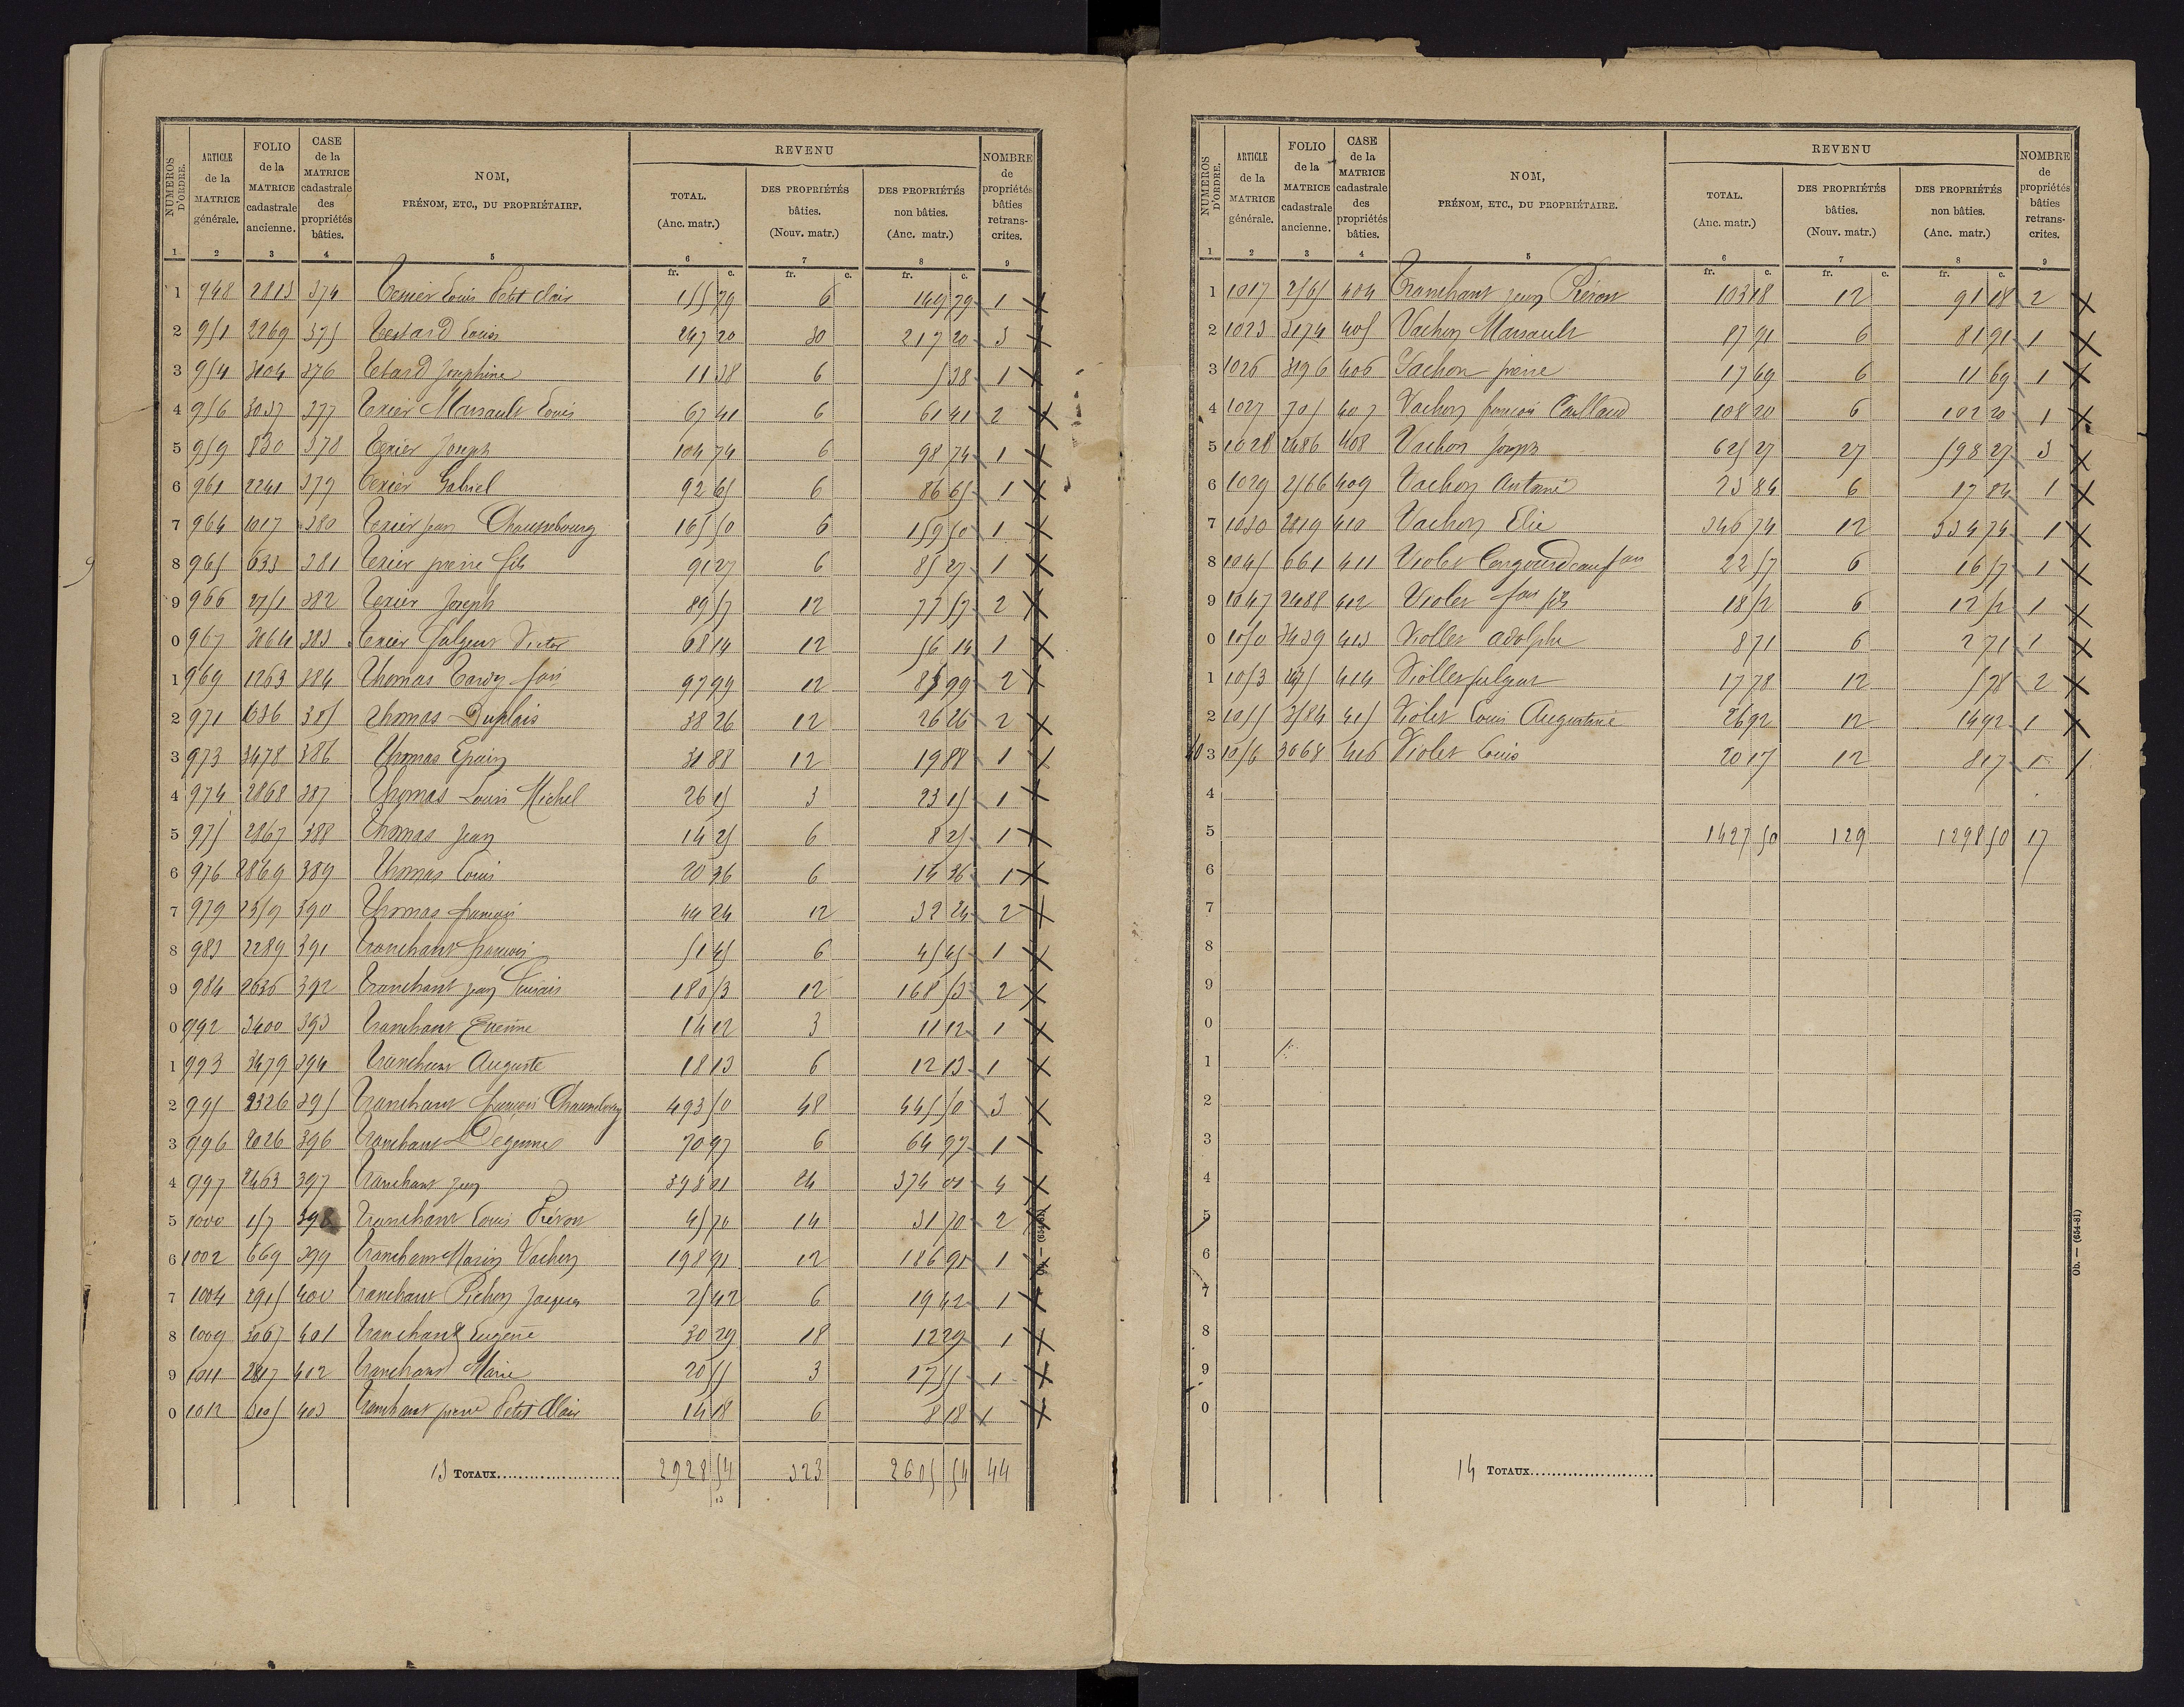 NUMÉROS D'ORDRE.
ARTICLE de la MATRICE générale.
FOLIO de la MATRICE cadastrale ancienne.
CASE de la MATRICE cadastrale des propriétés bâties.
NOM,
PRÉNOM, ETC., DU PROPRIÉTAIRE.
REVENU
TOTAL. (Anc. matr.)
DES PROPRIÉTÉS bâties. (Nouv. matr.)
DES PROPRIÉTÉS non bâties. (Anc. matr.)
NOMBRE de propriétés bâties retranscrites.
1 2 3 4 5 6 7 8 9
fr. c. fr. c. fr. c.
1 948 2813 374 Texier Louis Petit Clair 155 79 6 149 79 1 X
2 951 2269 375 Testard Louis 247 20 30 217 20 3 X
3 954 3104 376 Tetard Josephine 11 38 6 5 38 1 X
4 956 3037 377 Texier Marsault Louis 67 41 6 61 41 2 X
5 959 830 378 Texier Joseph 104 74 6 98 74 1 X
6 961 2241 379 Texier Gabriel 92 65 6 86 65 1 X
7 964 1017 380 Texier Jean 165 50 6 159 50 1 X
8 965 633 381 Texier pierre fils 91 27 6 85 27 1 X
9 966 2751 382 Texier Joseph 89 57 12 77 57 2 X
0 967 3064 383 Texier fulgent Victor 68 14 12 56 14 1 X
1 969 1263 384 Thomas Tardy 97 99 12 85 99 2 X
2 971 1036 385 Thomas Duplais 38 26 12 26 26 2 X
3 973 3478 386 Thomas Epain 31 88 12 19 88 1 X
4 974 2868 387 Thomas Louis Michel 26 15 3 23 15 1 X
5 975 2867 388 Thomas Jean 14 25 6 8 25 1 X
6 976 2869 389 Thomas Louis 20 36 6 14 36 1 X
7 979 2359 390 Thomas francois 44 24 12 32 24 2 X
8 983 2289 391 Tranchant francois 51 45 6 45 45 1 X
9 984 2636 392 Tranchant jean 180 53 12 168 53 2 X
0 992 3400 393 Tranchant Etienne 14 12 3 11 12 1 X
1 993 3479 394 Tranchant Auguste 18 13 6 12 13 1 X
2 995 2326 395 Tranchant françois 493 50 48 445 50 3 X
3 996 2026 396 Tranchant Degennes 70 97 6 64 97 1 X
4 997 2463 397 Tranchant jean 398 01 24 374 01 4 X
5 1000 157 398 Tranchant Louis Préron 45 70 14 31 70 2 X
6 1002 669 399 Tranchant Marin Vachon 198 91 12 186 91 1 X
7 1004 2915 400 Tranchant Pichon Jacques 25 42 6 19 42 1 X
8 1009 3067 401 Tranchant Eugène 30 29 18 12 29 1 X
9 1011 2817 402 Tranchant Marie 20 55 3 17 55 1 X
0 1012 403 Tranchant pierre Petit Clair 14 18 6 8 18 1 X
13 TOTAUX 2928 54 323 2605 54 44
Ob. — (654-81)
NUMÉROS D'ORDRE.
ARTICLE de la MATRICE générale.
FOLIO de la MATRICE cadastrale ancienne.
CASE de la MATRICE cadastrale des propriétés bâties.
NOM,
PRÉNOM, ETC., DU PROPRIÉTAIRE.
REVENU
TOTAL. (Anc. matr.)
DES PROPRIÉTÉS bâties. (Nouv. matr.)
DES PROPRIÉTÉS non bâties. (Anc. matr.)
NOMBRE de propriétés bâties retranscrites.
1 2 3 4 5 6 7 8 9
fr. c. fr. c. fr. c.
1 1017 2565 404 Tranchant jean Préron 103 18 12 91 18 2 X
2 1023 3174 405 Vachon Marsault 87 91 6 81 91 1 X
3 1026 3196 406 Vachon pierre 17 69 6 11 69 1 X
4 1027 705 407 Vachon francois Caillaud 108 20 6 102 20 1 X
5 1028 2486 408 Vachon Joseph 625 27 27 598 27 3 X
6 1029 2566 409 Vachon Antoine 23 84 6 17 84 1 X
7 1030 2819 410 Vachon Elie 346 74 12 334 74 1 X
8 1045 661 411 Violet 22 57 6 16 57 1 X
9 1047 2488 412 Violet fils 18 52 6 12 52 1 X
0 1050 3439 413 Viollet adolphe 8 71 6 2 71 1 X
1 1053 414 Viollet fulgent 17 78 12 5 78 2 X
2 1055 2584 415 Violet Louis Augustine 26 92 12 14 92 1 X
3 1056 3068 416 Violet Louis 20 17 12 8 17 1
4
5 1427 50 129 1298 50 17
6
7
8
9
0
1
2
3
4
5
6
7
8
9
0
14 TOTAUX
Ob. — (654-81)